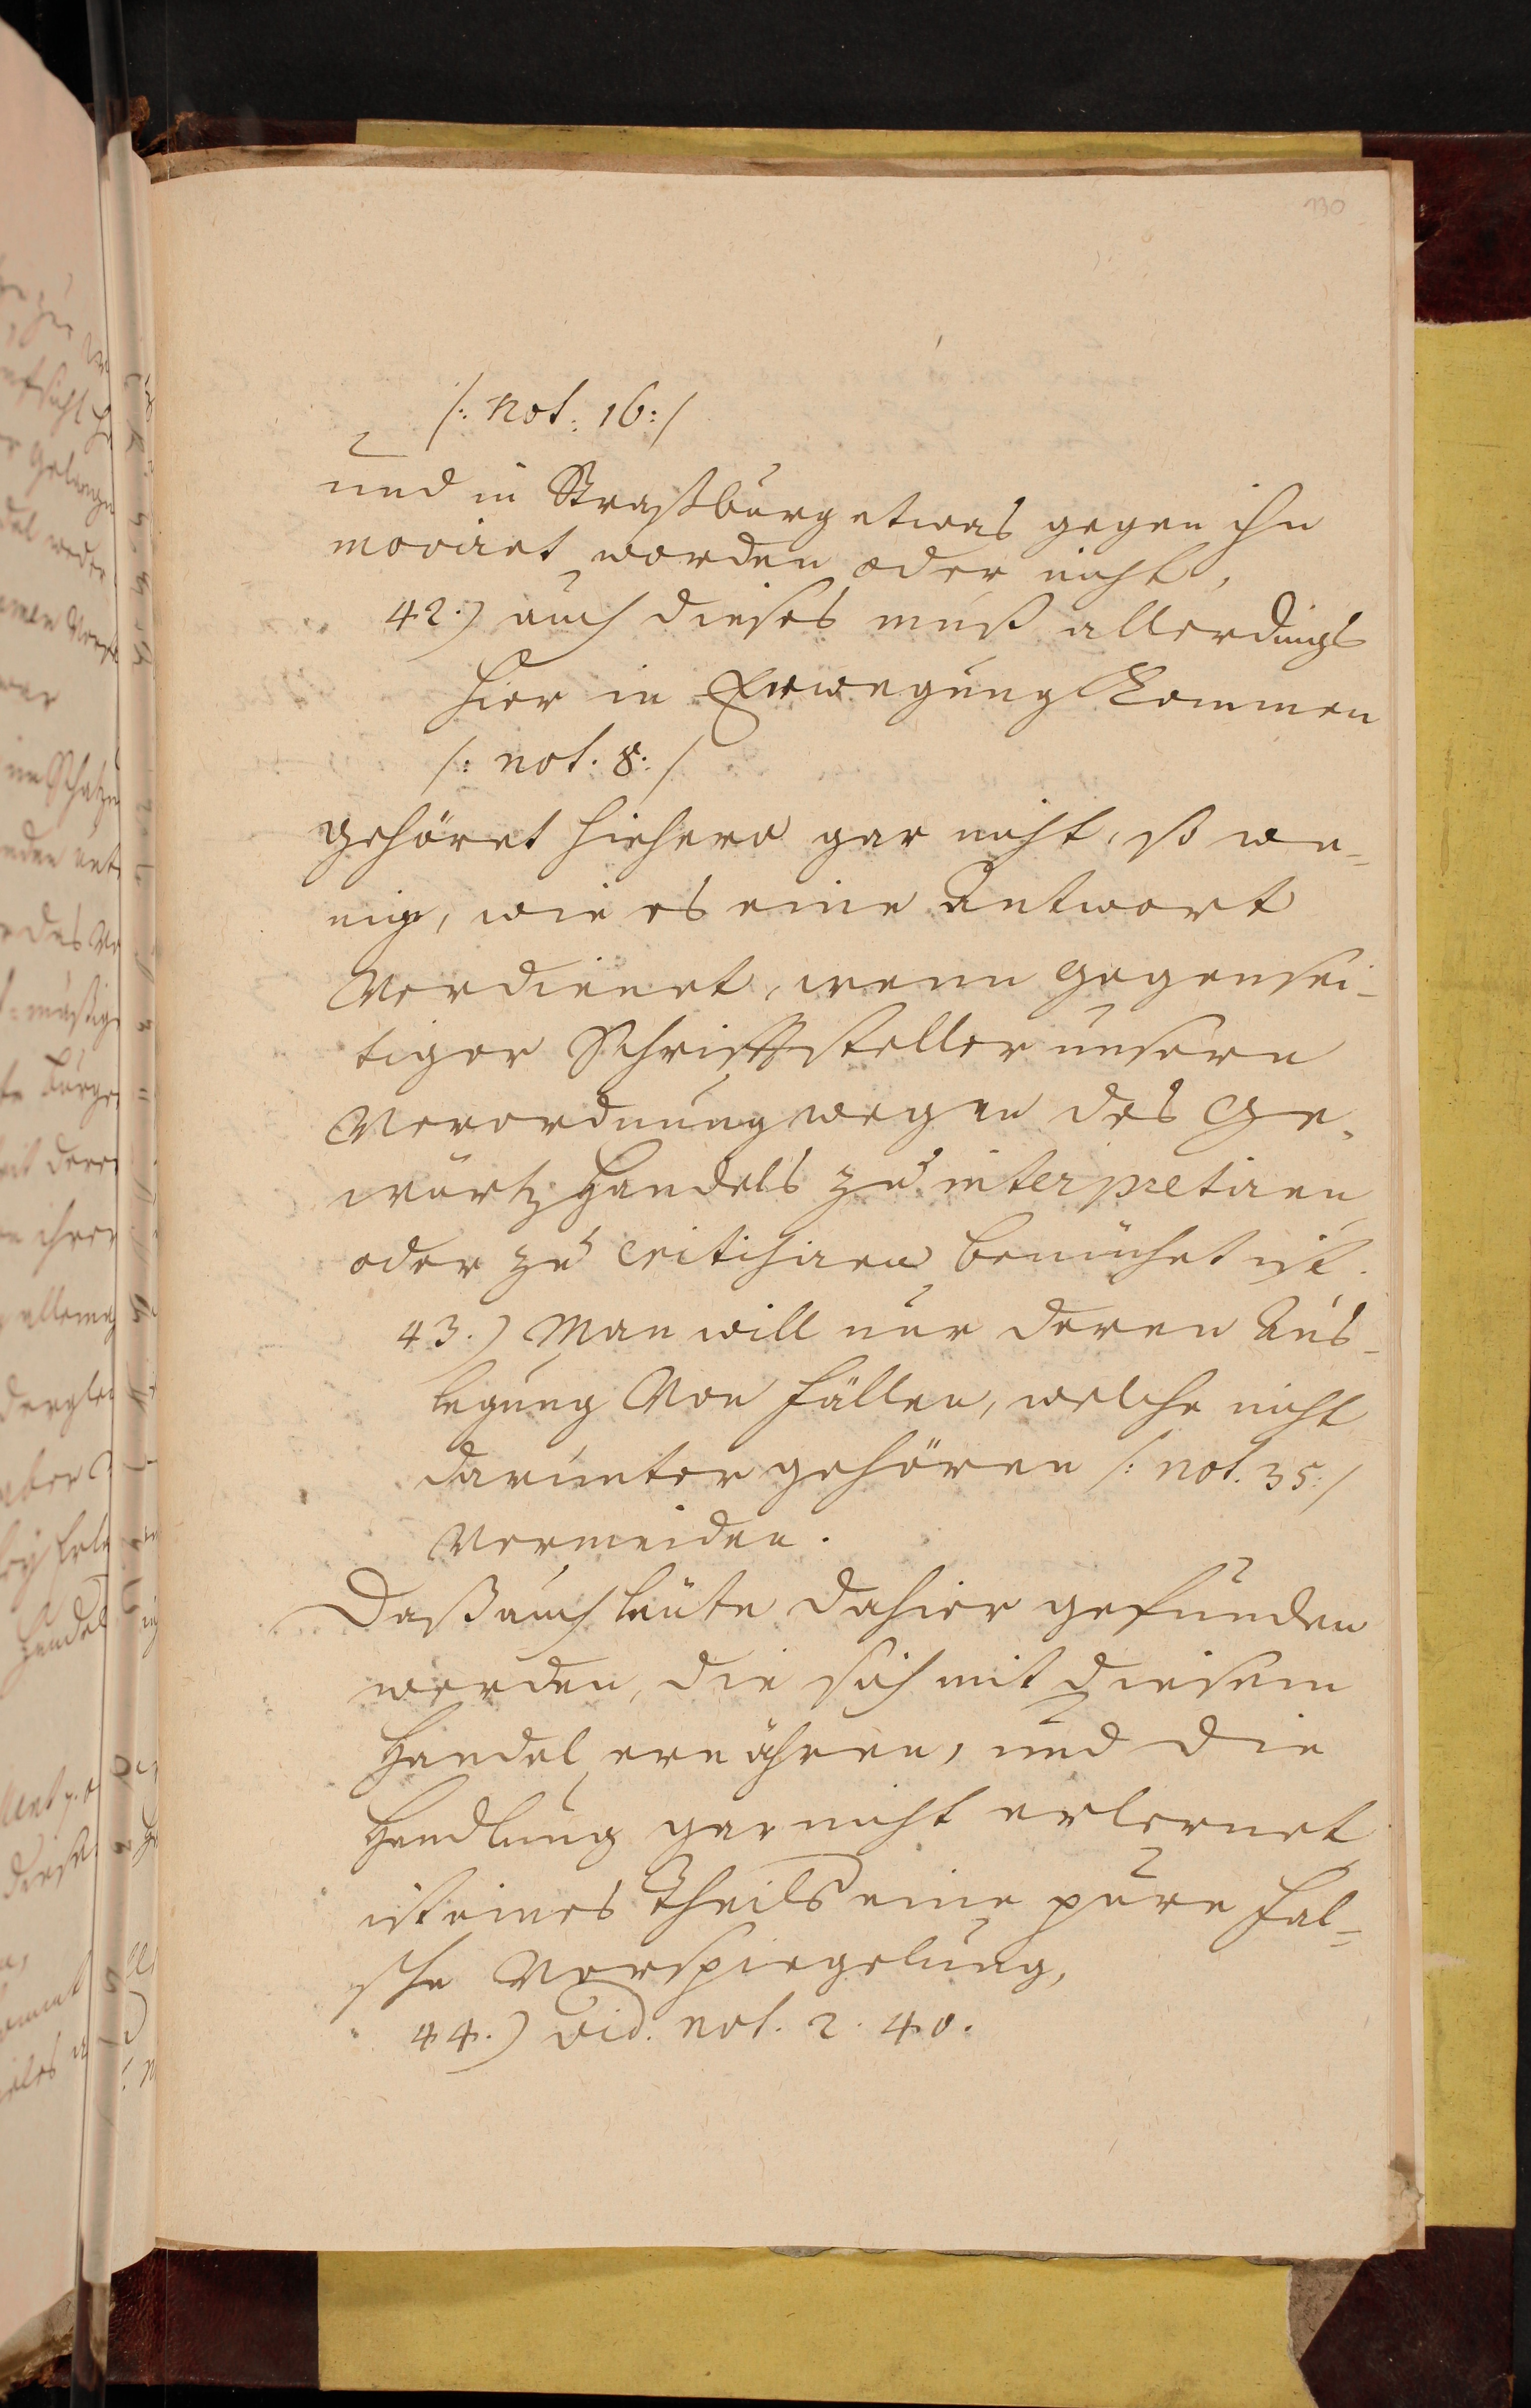 130
/: not: 16 :/
und in Straßburg etwas gegen ihn
moviret worden oder nicht,
42.) auch dieses muß allerdings
hier in Erwegung kommen
/: not. 8. /
gehöret hiehero gar nicht, so we=
nig, wie es eine Antwort
Verdienet, wenn gegensei-
tiger Schriftsteller unsere
Verordnung wegen des Ge-
würtz Handels zu interpretiren
oder zu critisiren bemühet ist.
43.) Man will nur deren Aus-
legung Von Fällen, welche nicht
darunter gehören /: not. 35. /
Vermeiden.
Daß auch Leute dahier gefunden
werden, die sich mit diesem
Handel ernähren, und die
Handlung gar nicht erlernet
ist eines Theils eine pure fal=
sche Vorspiegelung,
44.) vid. not. 2. 40.